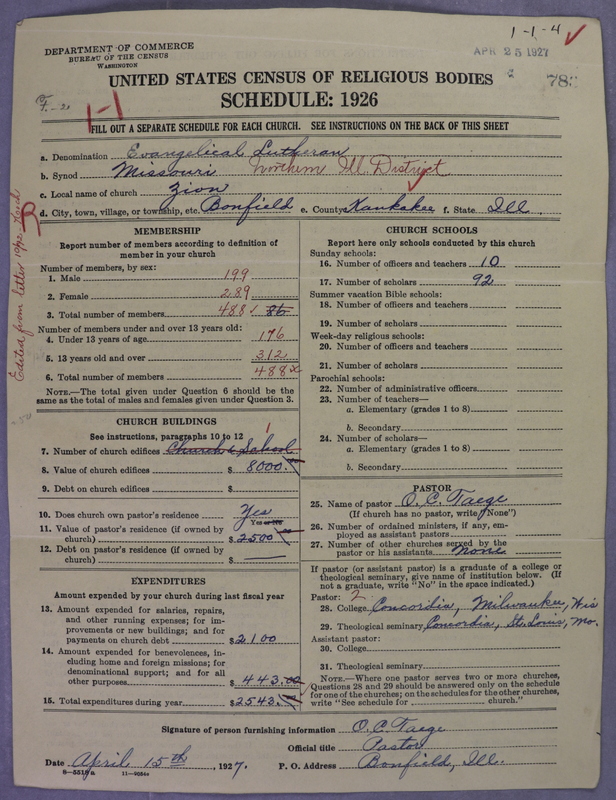 1-1-4
APR 25 1927
DEPARTMENT OF COMMERCE
BUREAU OF THE CENSUS
WASHINGTON
UNITED STATES CENSUS OF RELIGIOUS BODIES
SCHEDULE: 1926
1-1
FILL OUT A SEPARATE SCHEDULE FOR EACH CHURCH. SEE INSTRUCTIONS ON THE BACK OF THIS SHEET
a. Denomination Evangelical Lutheran
b. Synod Missouri Northern Ill. District
c. Local name of church Zion
d. City, town, village, or township, etc. Bonfield e. County Kankakee f. State Ill.
MEMBERSHIP
Report number of members according to definition of member in your church
Number of members, by sex:
1. Male 199
2. Female 289
3. Total number of members 488
Number of members under and over 13 years old:
4. Under 13 years of age 176
5. 13 years old and over 312
6. Total number of members 488
NOTE.—The total given under Question 6 should be the same as the total of males and females given under Question 3.
CHURCH BUILDINGS
See instructions, paragraphs 10 to 12
7. Number of church edifices Church & School 1
8. Value of church edifices $ 8000.
9. Debt on church edifices $
10. Does church own pastor's residence Yes
Yes or No
11. Value of pastor's residence (if owned by church) $ 2500
12. Debt on pastor's residence (if owned by church) $
EXPENDITURES
Amount expended by your church during last fiscal year
13. Amount expended for salaries, repairs, and other running expenses; for improvements or new buildings; and for payments on church debt $ 2100
14. Amount expended for benevolences, including home and foreign missions; for denominational support; and for all other purposes $ 443.00
15. Total expenditures during year $ 2543.
CHURCH SCHOOLS
Report here only schools conducted by this church
Sunday schools:
16. Number of officers and teachers 10
17. Number of scholars 92
Summer vacation Bible schools:
18. Number of officers and teachers
19. Number of scholars
Week-day religious schools:
20. Number of officers and teachers
21. Number of scholars
Parochial schools:
22. Number of administrative officers
23. Number of teachers—
a. Elementary (grades 1 to 8)
b. Secondary
24. Number of scholars—
a. Elementary (grades 1 to 8)
b. Secondary
PASTOR
25. Name of pastor O. C. Taege
(If church has no pastor, write "None")
26. Number of ordained ministers, if any, employed as assistant pastors
27. Number of other churches served by the pastor or his assistants None
If pastor (or assistant pastor) is a graduate of a college or theological seminary, give name of institution below. (If not a graduate, write "No" in the space indicated.)
Pastor: 2
28. College Concordia, Milwaukee, Wis
29. Theological seminary Concordia, St. Louis, Mo.
Assistant pastor:
30. College
31. Theological seminary
NOTE.—Where one pastor serves two or more churches, Questions 28 and 29 should be answered only on the schedule for one of the churches; on the schedules for the other churches, write "See schedule for church."
Signature of person furnishing information O. C. Taege
Official title Pastor
Date April 15th, 1927. P. O. Address Bonfield, Ill.
8-5519a 11-9054